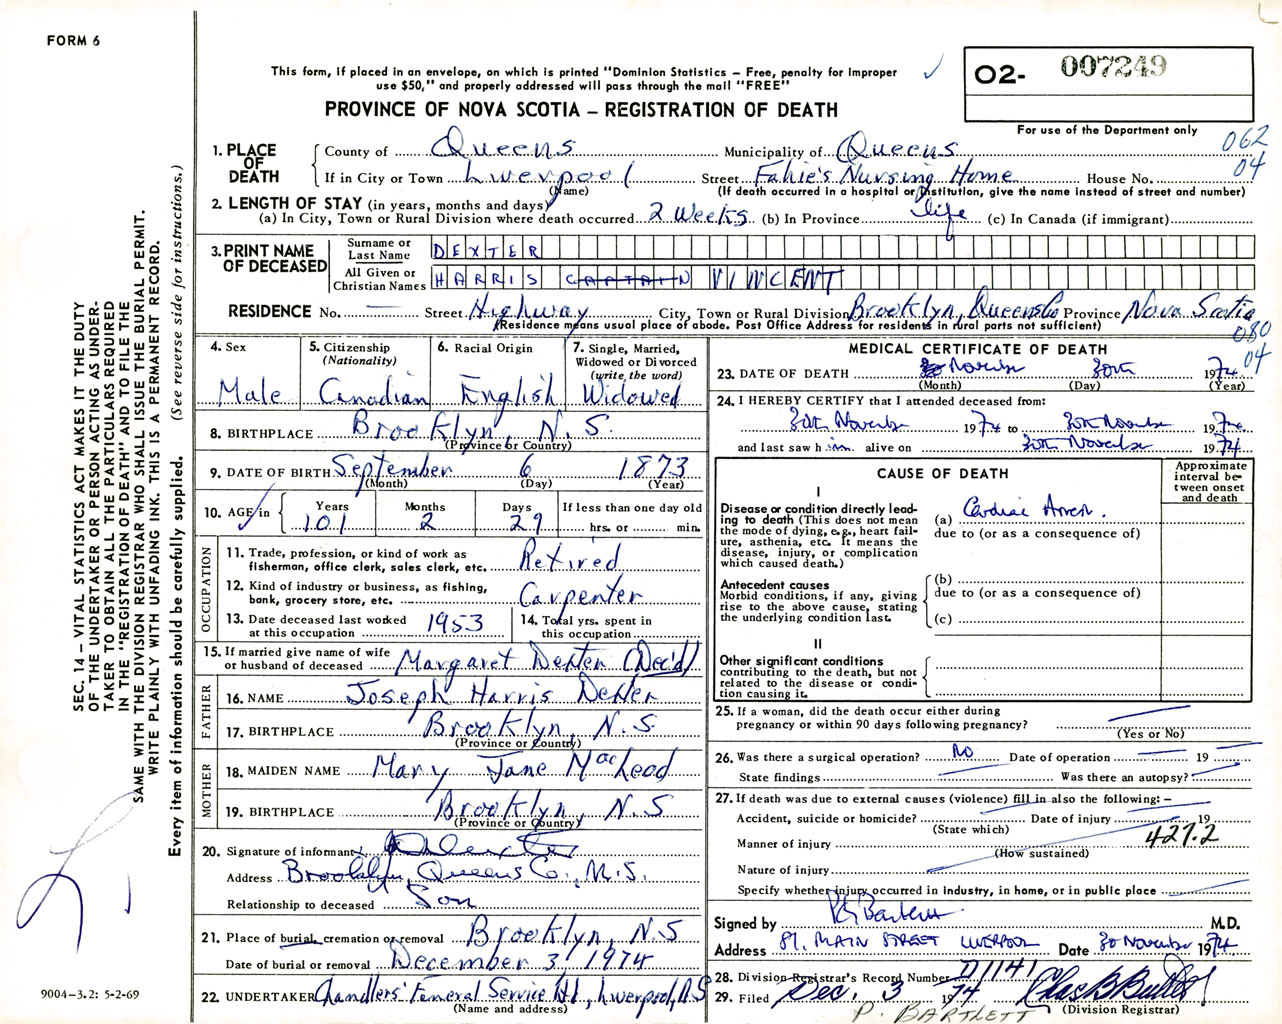 FORM 6
This form, if placed in an envelope, on which is printed "Dominion Statistics – Free, penalty for improper
use $50," and properly addressed will pass through the mail "FREE"
PROVINCE OF NOVA SCOTIA – REGISTRATION OF DEATH
02- 007249
For use of the Department only
062
04
SEC. 14 – VITAL STATISTICS ACT MAKES IT THE DUTY
OF THE UNDERTAKER OR PERSON ACTING AS UNDER-
TAKER TO OBTAIN ALL THE PARTICULARS REQUIRED
IN THE "REGISTRATION OF DEATH" AND TO FILE THE
SAME WITH THE DIVISION REGISTRAR WHO SHALL ISSUE THE BURIAL PERMIT.
WRITE PLAINLY WITH UNFADING INK. THIS IS A PERMANENT RECORD.
Every item of information should be carefully supplied. (See reverse side for instructions.)
1. PLACE OF DEATH
County of Queens Municipality of Queens
If in City or Town Liverpool Street Fahie's Nursing Home House No.
(Name) (If death occurred in a hospital or institution, give the name instead of street and number)
2. LENGTH OF STAY (in years, months and days)
(a) In City, Town or Rural Division where death occurred 2 Weeks (b) In Province life (c) In Canada (if immigrant)
3. PRINT NAME OF DECEASED
Surname or Last Name DEXTER
All Given or Christian Names HARRIS CAPTAIN VINCENT
RESIDENCE No. — Street Highway City, Town or Rural Division Brooklyn, Queens Co Province Nova Scotia
(Residence means usual place of abode. Post Office Address for residents in rural parts not sufficient)
080
04
4. Sex
Male
5. Citizenship
(Nationality)
Canadian
6. Racial Origin
English
7. Single, Married,
Widowed or Divorced
(write the word)
Widowed
8. BIRTHPLACE Brooklyn, N.S.
(Province or Country)
9. DATE OF BIRTH September 6 1873
(Month) (Day) (Year)
10. AGE in
Years 101
Months 2
Days 29
If less than one day old
hrs. or min.
OCCUPATION
11. Trade, profession, or kind of work as
fisherman, office clerk, sales clerk, etc. Retired
12. Kind of industry or business, as fishing,
bank, grocery store, etc. Carpenter
13. Date deceased last worked
at this occupation 1953
14. Total yrs. spent in
this occupation
15. If married give name of wife
or husband of deceased Margaret Dexter (Dec'd)
FATHER
16. NAME Joseph Harris Dexter
17. BIRTHPLACE Brooklyn, N.S.
(Province or Country)
MOTHER
18. MAIDEN NAME Mary Jane MacLeod
19. BIRTHPLACE Brooklyn, N.S
(Province or Country)
20. Signature of informant Dexter
Address Brooklyn, Queens Co., N.S.
Relationship to deceased Son
21. Place of burial, cremation or removal Brooklyn, N.S
Date of burial or removal December 3, 1974
22. UNDERTAKER Chandlers' Funeral Service Ltd, Liverpool, N.S
(Name and address)
9004-3.2: 5-2-69
MEDICAL CERTIFICATE OF DEATH
23. DATE OF DEATH November 30th 1974
(Month) (Day) (Year)
24. I HEREBY CERTIFY that I attended deceased from:
30th November 1974 to 30th November 1974
and last saw him alive on 30th November 1974
CAUSE OF DEATH
Approximate
interval be-
tween onset
and death
I
Disease or condition directly lead-
ing to death (This does not mean
the mode of dying, e.g., heart fail-
ure, asthenia, etc. It means the
disease, injury, or complication
which caused death.)
(a) Cardiac Arrest.
due to (or as a consequence of)
Antecedent causes
Morbid conditions, if any, giving
rise to the above cause, stating
the underlying condition last.
(b)
due to (or as a consequence of)
(c)
II
Other significant conditions
contributing to the death, but not
related to the disease or condi-
tion causing it.
25. If a woman, did the death occur either during
pregnancy or within 90 days following pregnancy?
(Yes or No)
26. Was there a surgical operation? No Date of operation 19
State findings Was there an autopsy?
27. If death was due to external causes (violence) fill in also the following: –
Accident, suicide or homicide? Date of injury 19
(State which)
427.2
Manner of injury
(How sustained)
Nature of injury
Specify whether injury occurred in industry, in home, or in public place
Signed by Bartlett M.D.
Address 81, MAIN STREET LIVERPOOL Date 30 November 1974
28. Division Registrar's Record Number D1141
29. Filed Dec. 3 1974
(Division Registrar)
P. BARTLETT